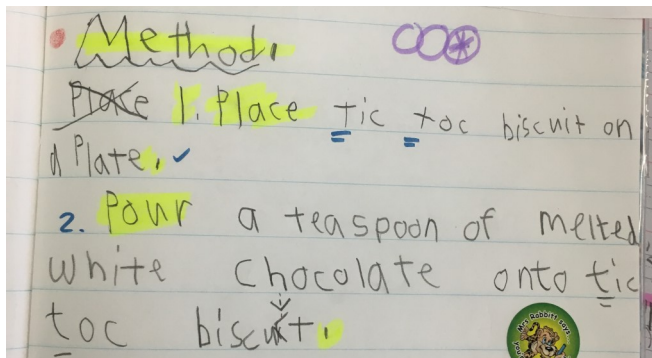 Method.
Place 1. Place tic toc biscuit on
a Plate.
2. Pour a teaspoon of melted
white chocolate onto tic
toc biscuit.
Mrs Rabbitt says